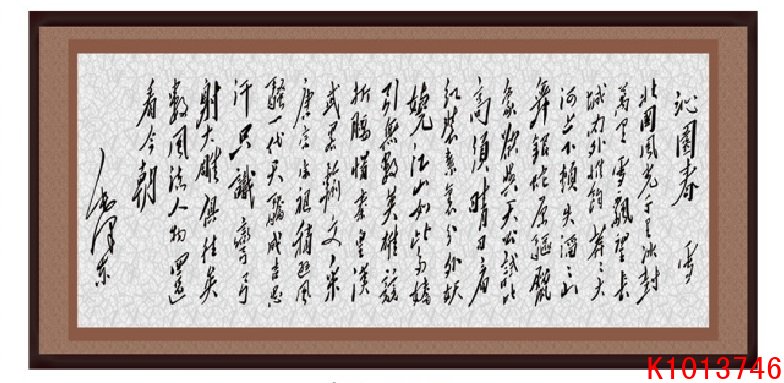 沁園春 雪
北國風光千里冰封
萬里雪飄望長
城內外惟餘莽莽大
河上下頓失滔滔山
舞銀蛇原驅臘
象欲與天公試比
高須晴日看
紅裝素裹分外妖
嬈江山如此多嬌
引無數英雄競
折腰惜秦皇漢
武略輸文采
唐宗宋祖稍遜風
騷一代天驕成吉思
汗只識彎弓
射大雕俱往矣
數風流人物還
看今朝
毛澤東
K1013746